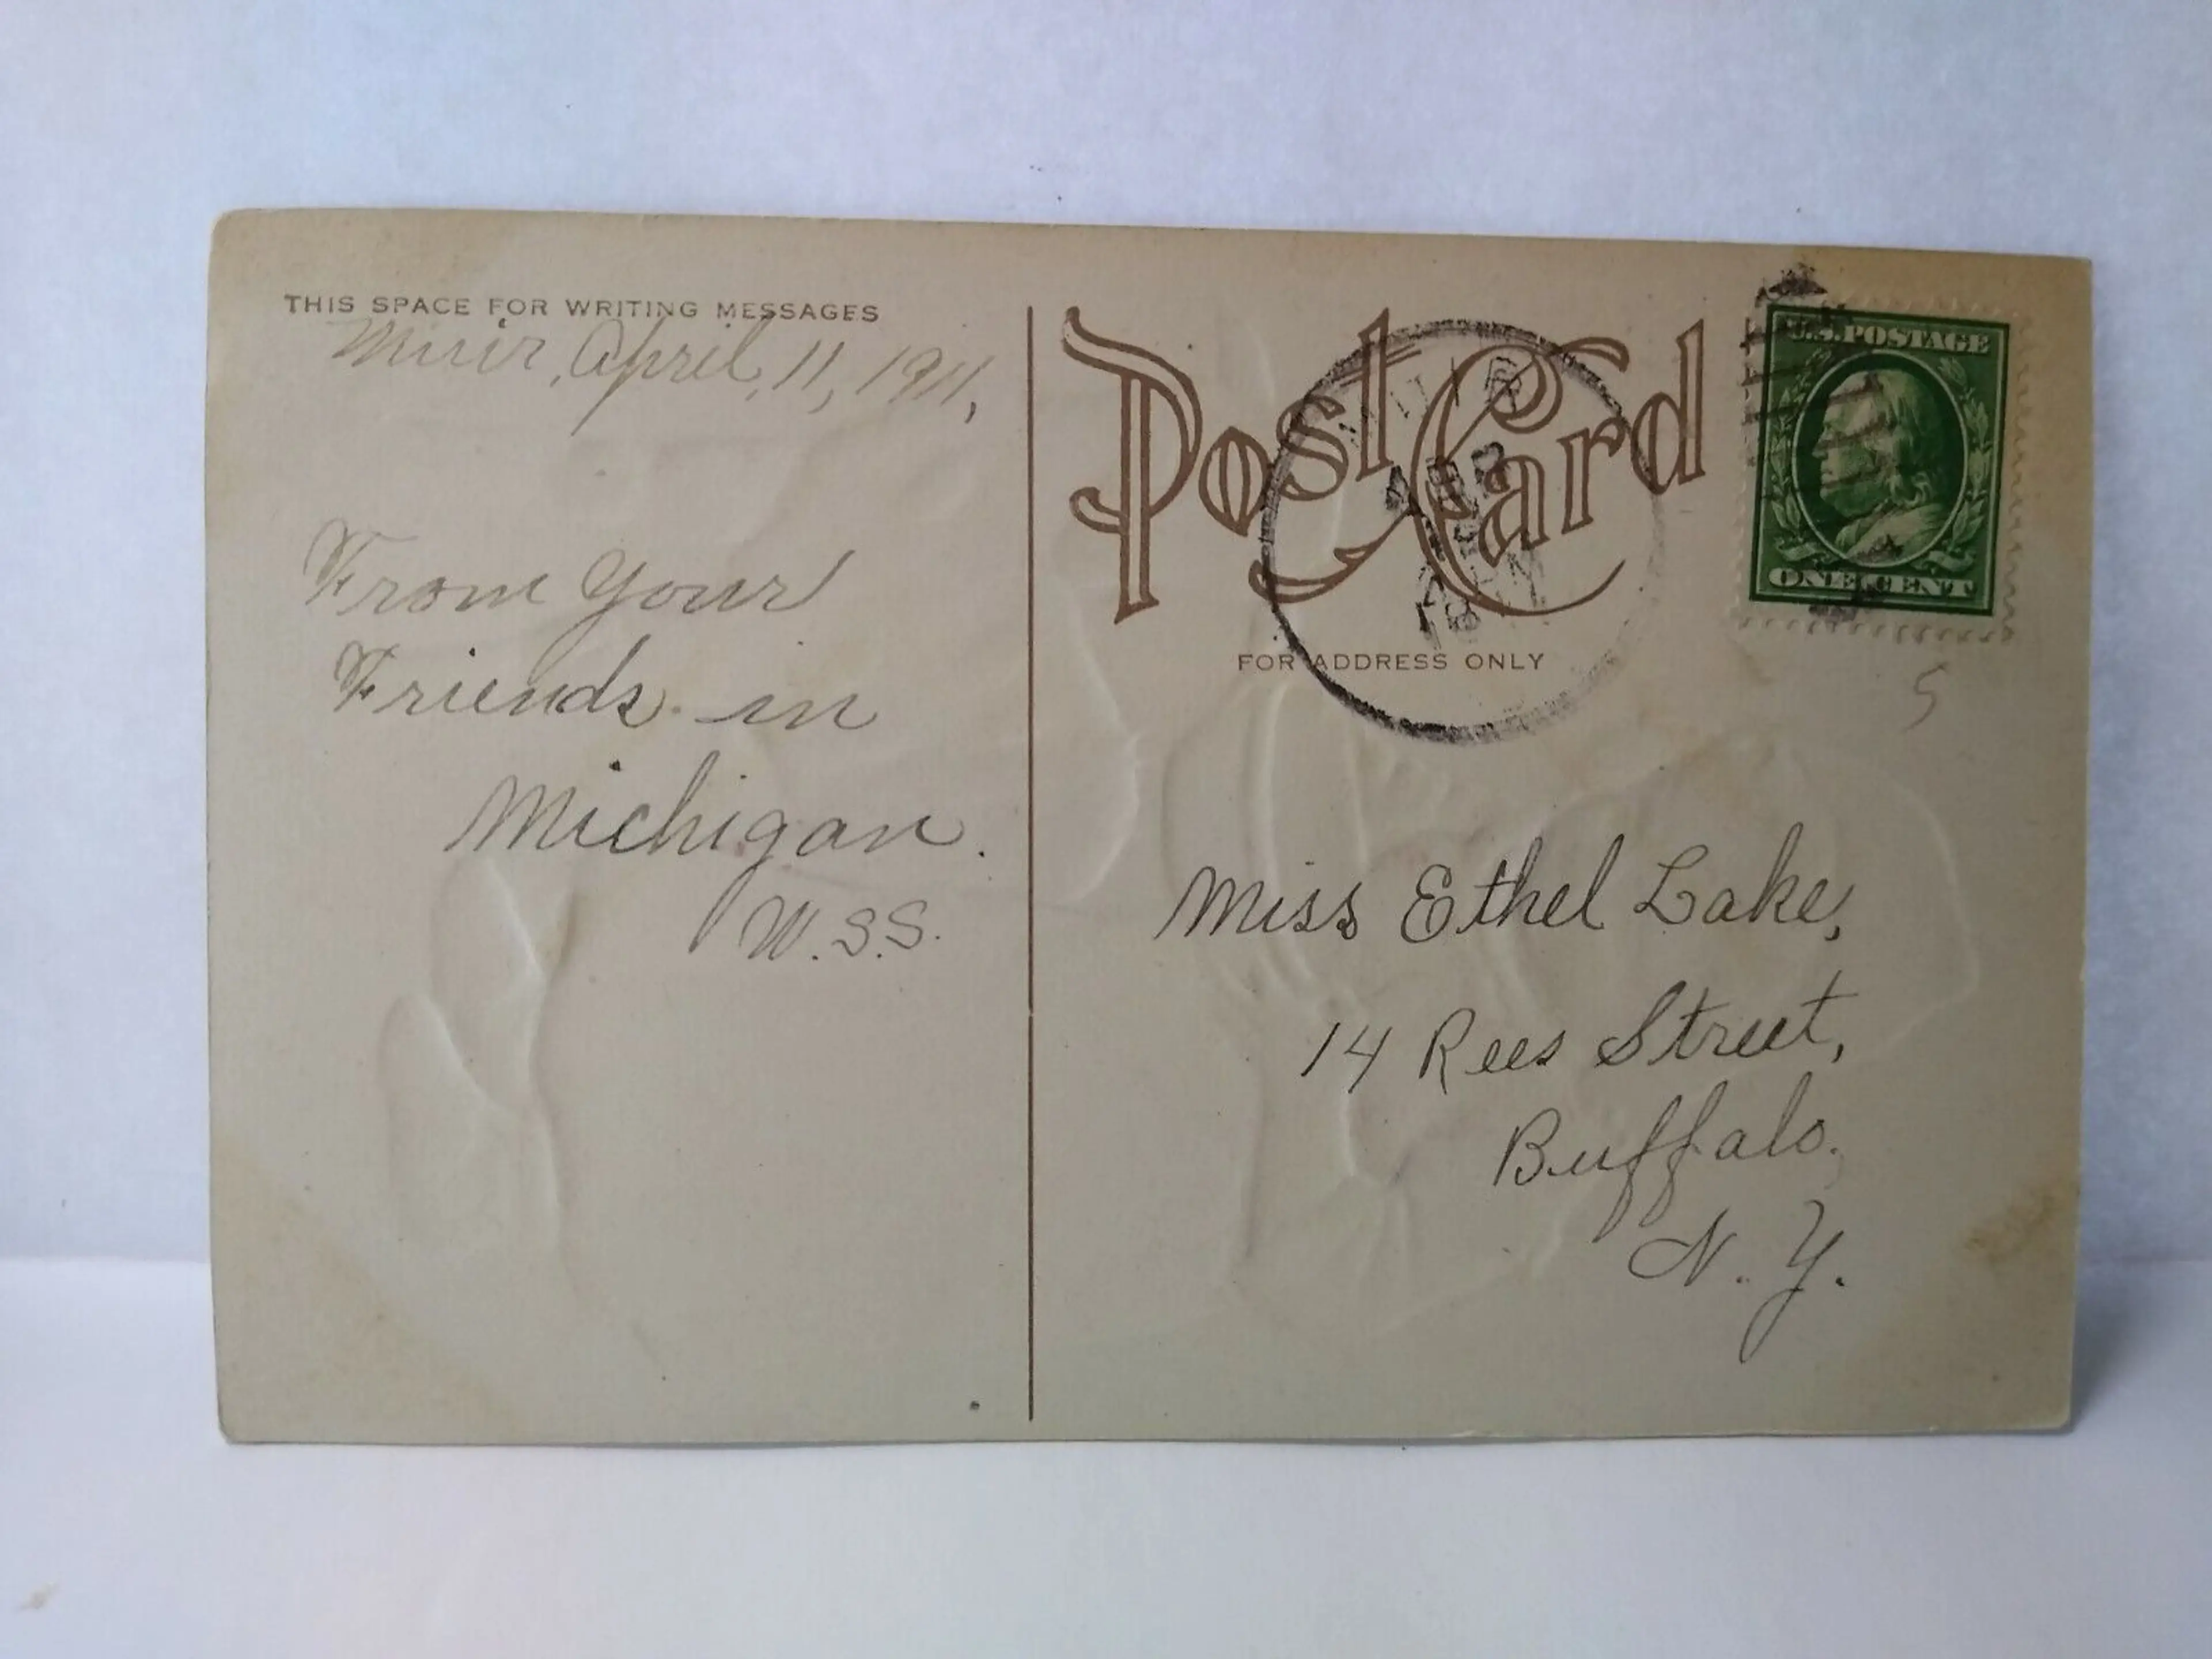 THIS SPACE FOR WRITING MESSAGES
Muir, April, 11, 1911,
From Your
Friends in
Michigan.
W.S.S.
Post Card
FOR ADDRESS ONLY
MUIR
APR
U.S. POSTAGE
ONE CENT
5
Miss Ethel Lake,
14 Rees Street,
Buffalo,
N. Y.